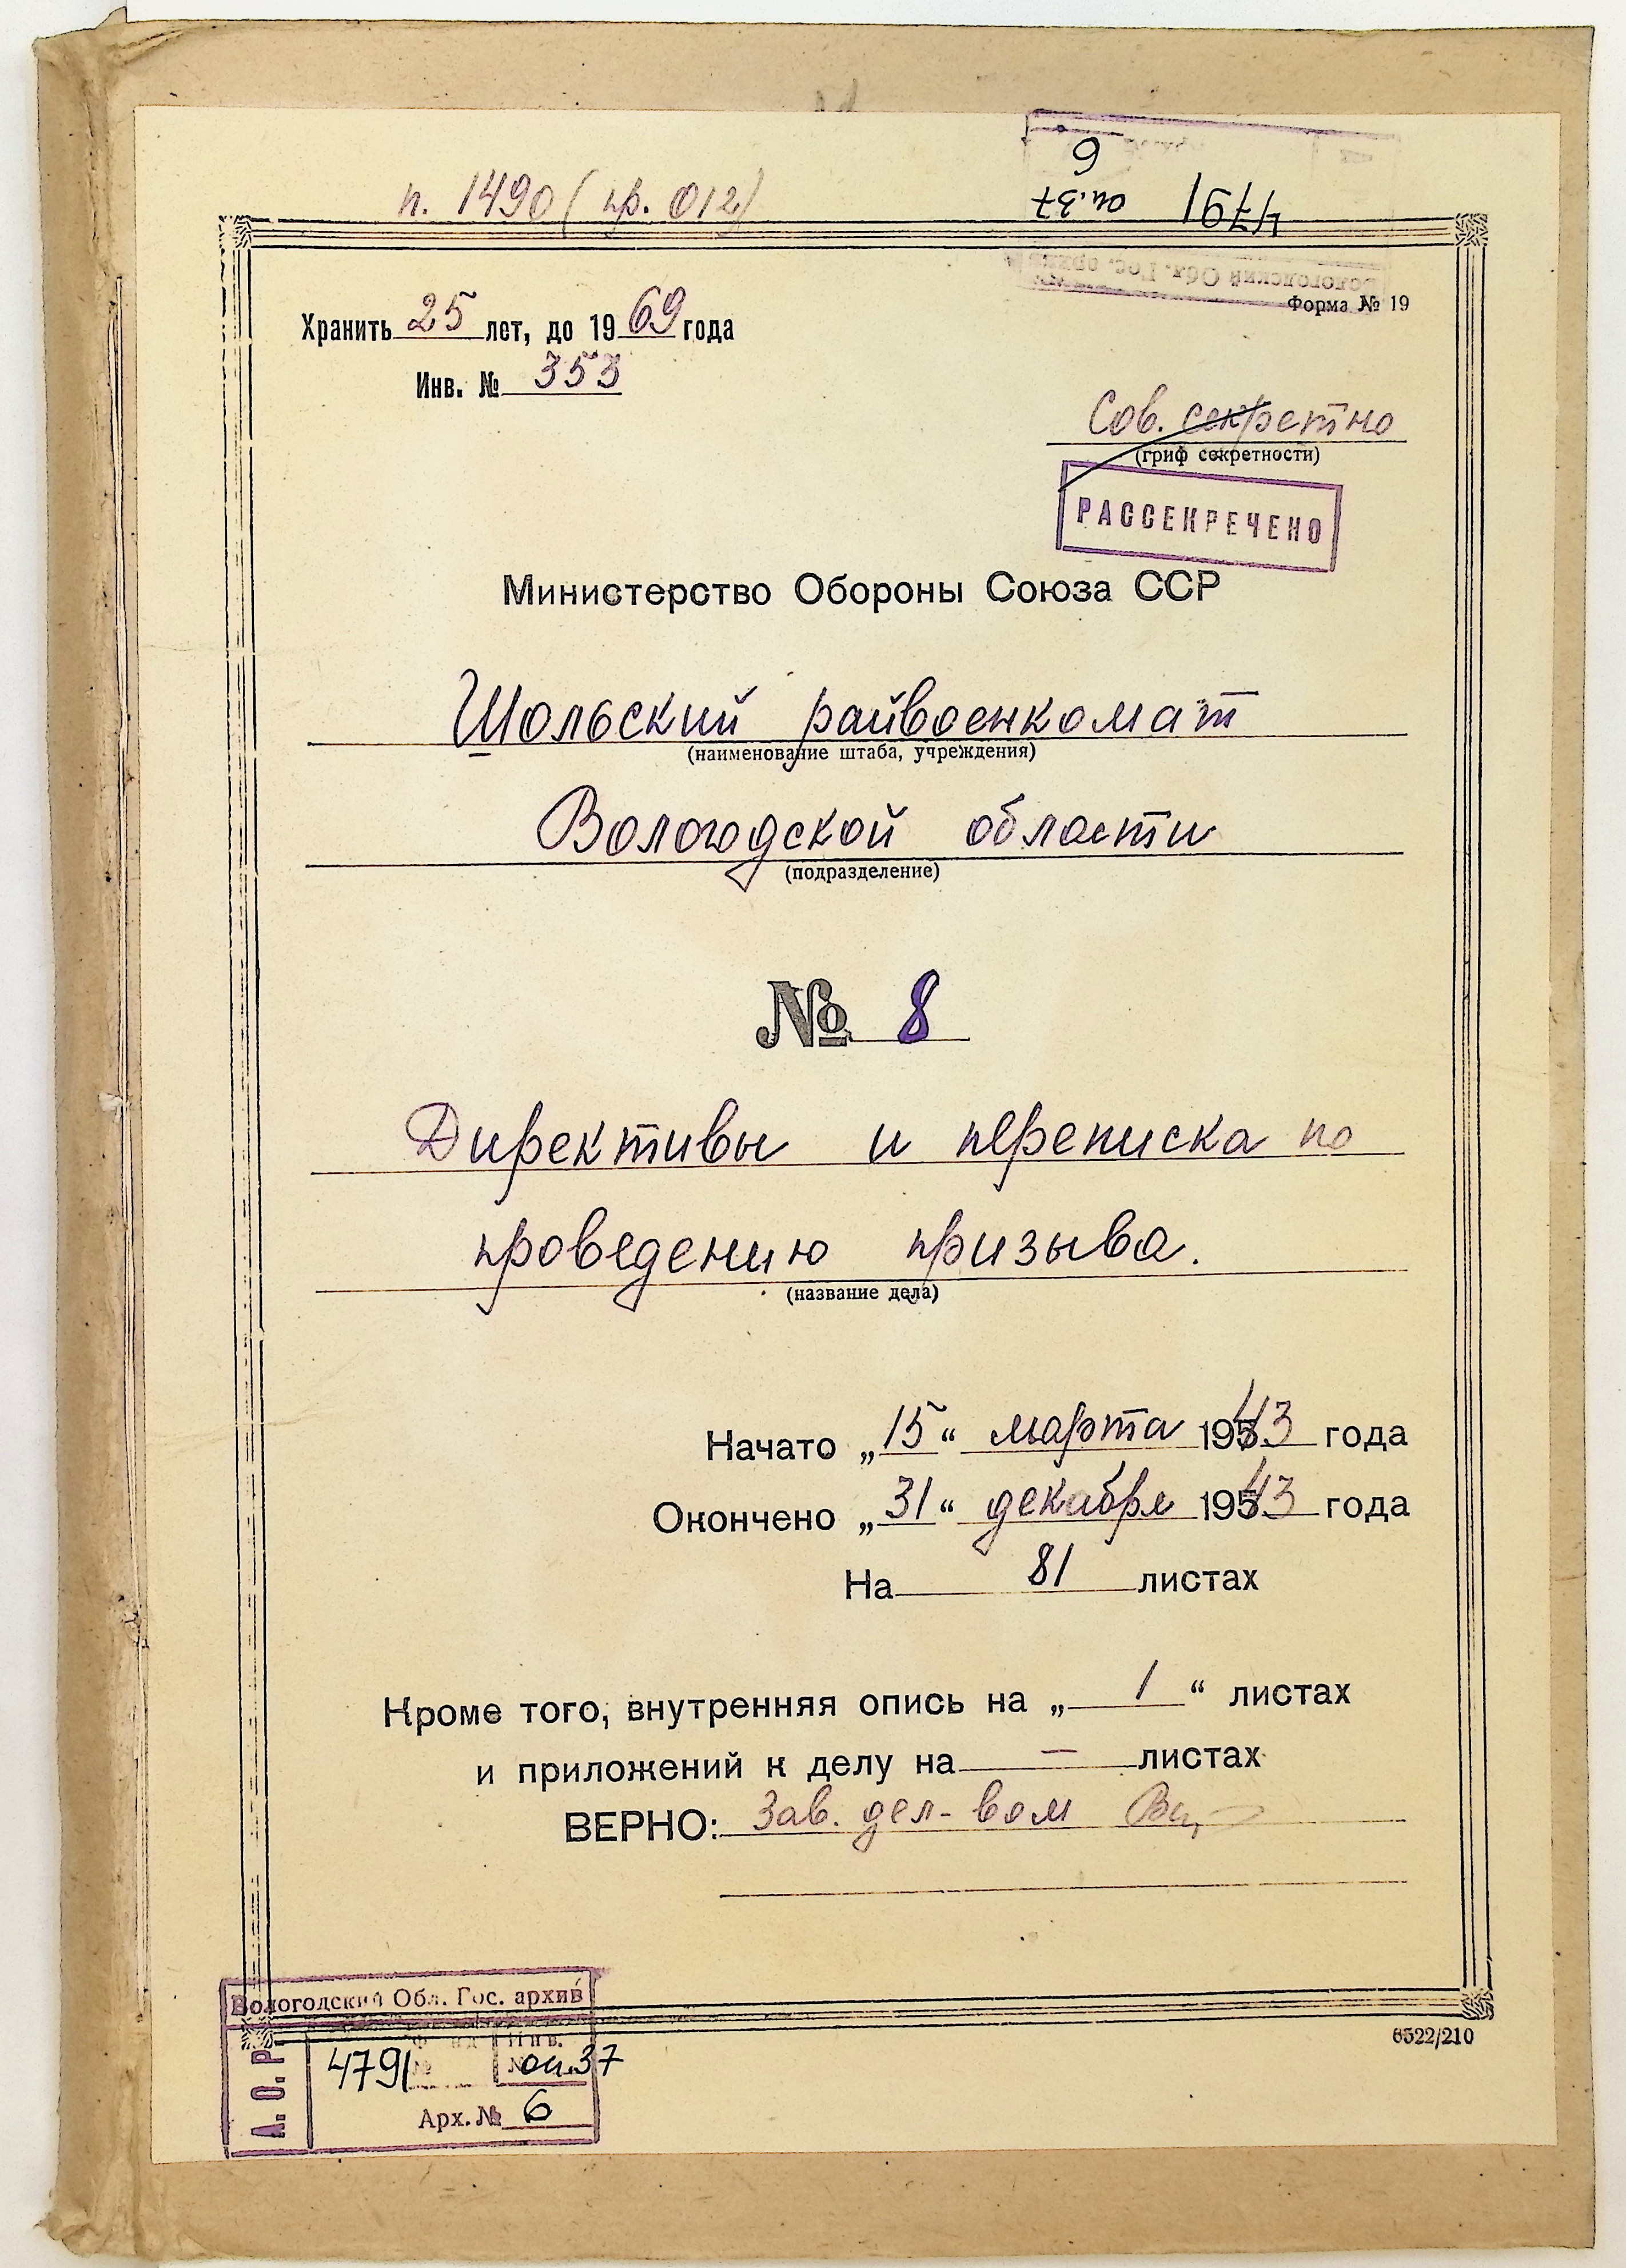 п. 1490 (пр. 012)
6
оп. 37 4791
Вологодский Обл. Гос. архив
Форма № 19
Хранить 25 лет, до 1969 года
Инв. № 353
Сов. секретно
(гриф секретности)
РАССЕКРЕЧЕНО
Министерство Обороны Союза ССР
Шольский райвоенкомат
(наименование штаба, учреждения)
Вологодской области
(подразделение)
№ 8
Директивы и переписка по
проведению призыва.
(название дела)
Начато „15“ марта 1943 года
Окончено „31“ декабря 1943 года
На 81 листах
Кроме того, внутренняя опись на „1“ листах
и приложений к делу на — листах
ВЕРНО: Зав. дел-вом
Вологодский Обл. Гос. архив
А. О. Р.
Фонд № 4791 Инв. № оп.37
Арх. № 6
6522/210